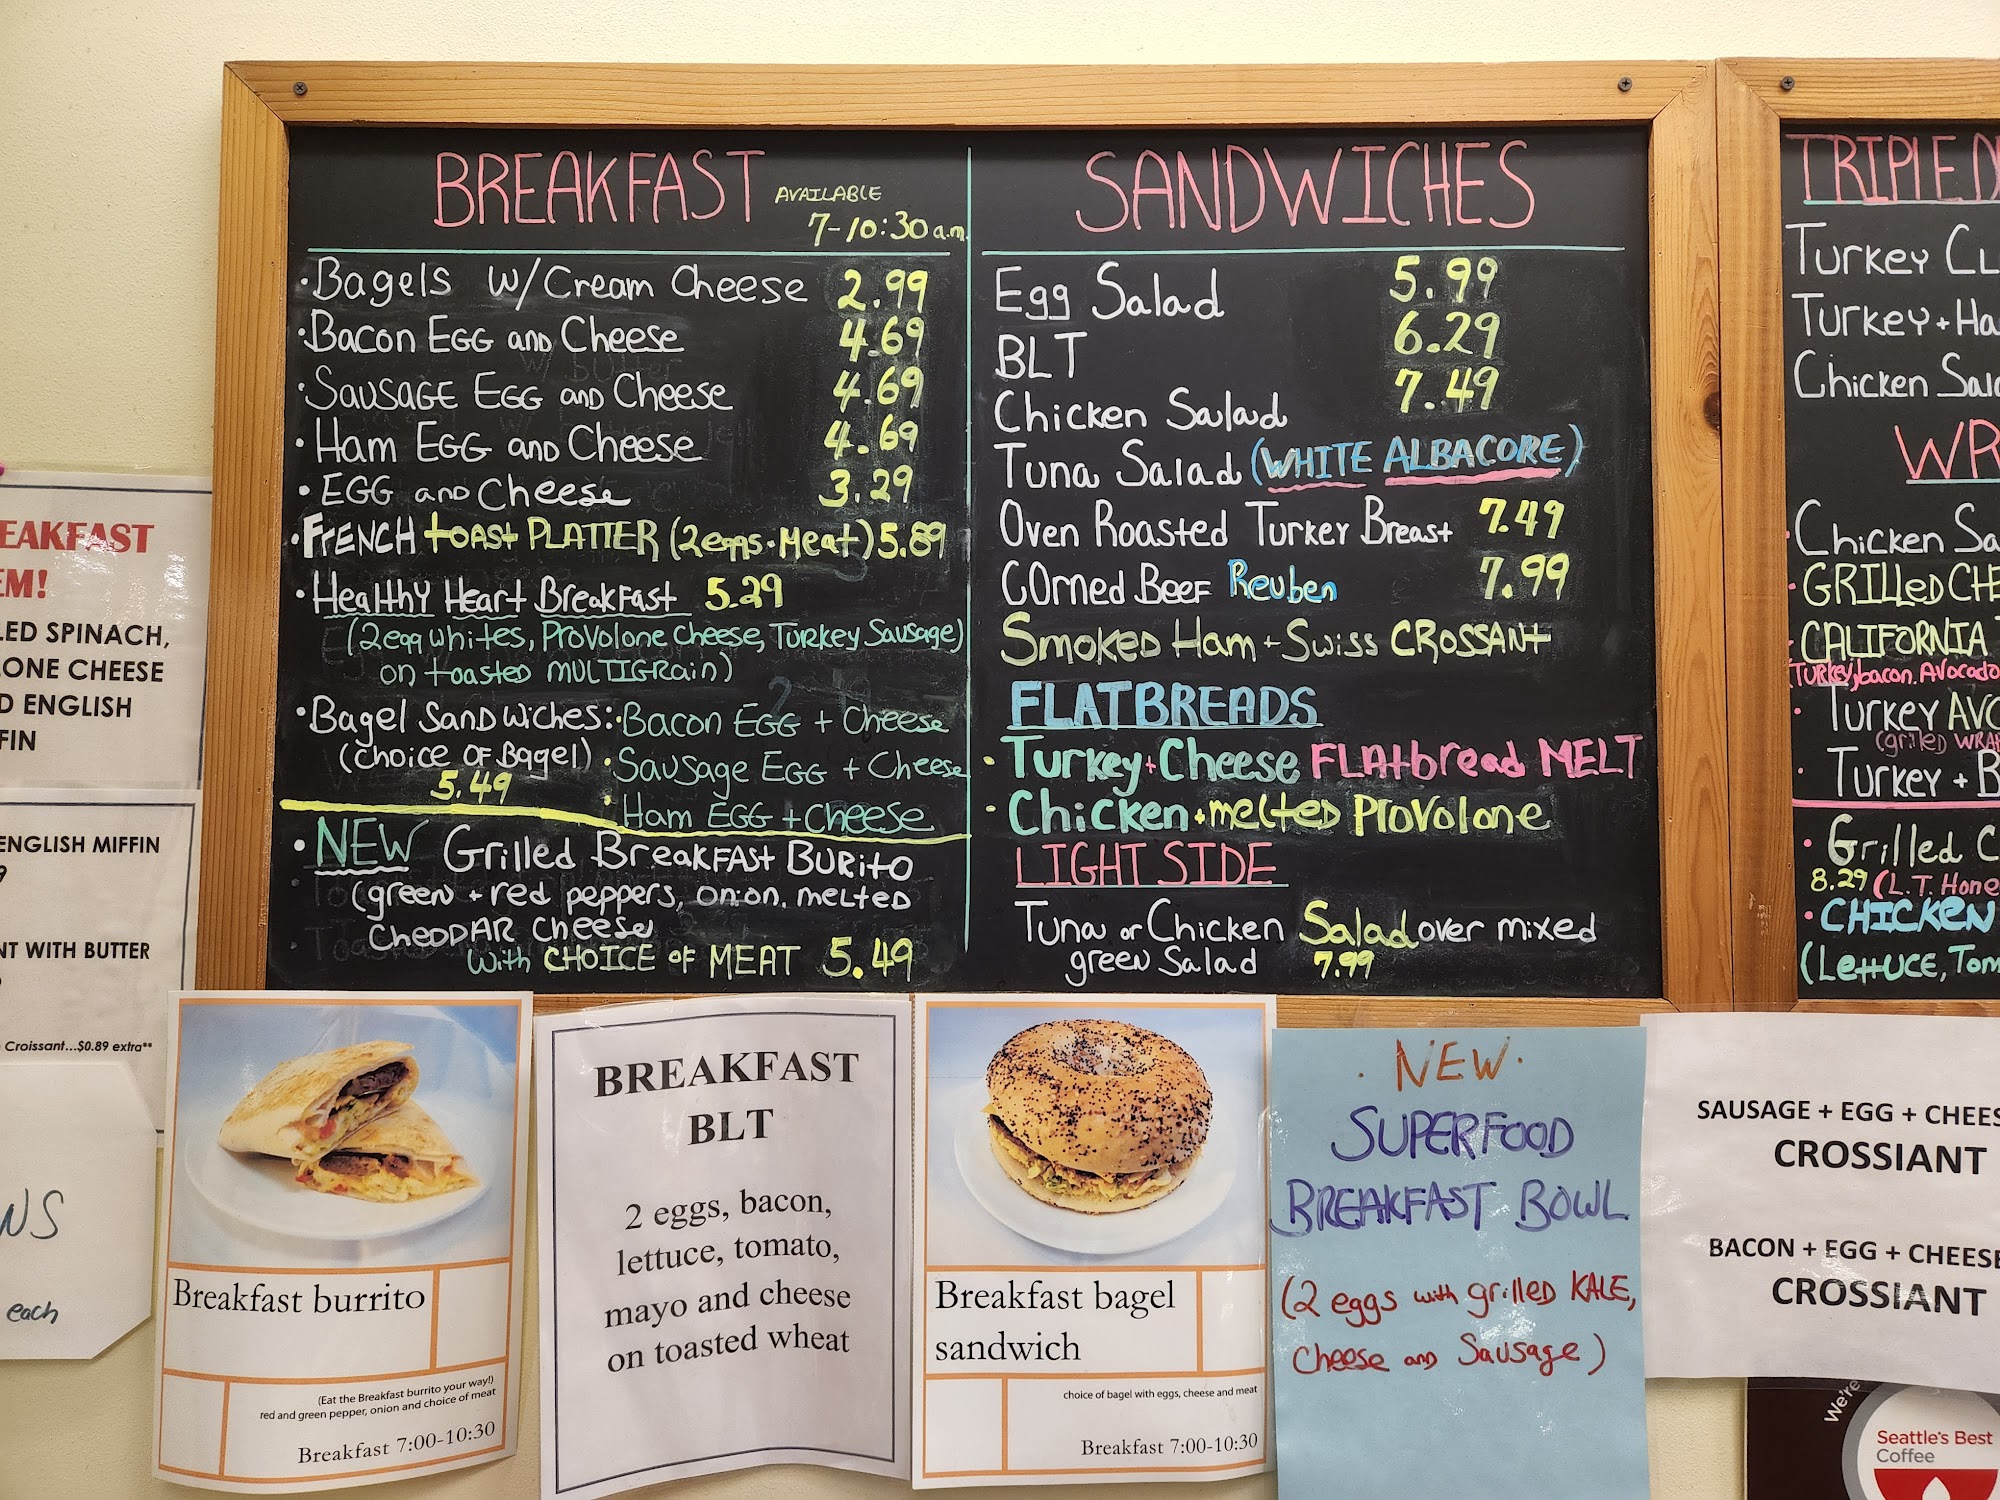 BREAKFAST AVAILABLE
7-10:30 a.m.
·Bagels w/Cream Cheese 2.99
·Bacon EGG AND Cheese 4.69
·SAUSAGE EGG AND Cheese 4.69
·Ham EGG AND Cheese 4.69
·EGG AND Cheese 3.29
·FRENCH toast PLATTER (2eggs·Meat) 5.89
·Healthy Heart Breakfast 5.29
(2egg whites, Provolone Cheese, Turkey Sausage)
on toasted MULTIGrain)
·Bagel SANDwiches:·Bacon EGG + Cheese
(choice OF Bagel) ·Sausage EGG + Cheese
5.49 ·Ham EGG + Cheese
·NEW Grilled BreakFAST BURito
(green + red peppers, onion, melted
CHEDDAR cheese
with CHOICE of MEAT 5.49
SANDWICHES
Egg Salad 5.99
BLT 6.29
Chicken Salad 7.49
Tuna Salad (WHITE ALBACORE)
Oven Roasted Turkey Breast 7.49
Corned Beef Reuben 7.99
Smoked Ham + Swiss CROSSANT
FLATBREADS
·Turkey+Cheese FLAtbread MELT
·Chicken·melted Provolone
LIGHT SIDE
Tuna or Chicken Salad over mixed
green Salad 7.99
TRIPLE D
Turkey CL
Turkey + Ha
Chicken Sala
WR
·Chicken Sa
·GRILLED CHE
·CALIFORNIA T
(Turkey, bacon. Avocado
·Turkey AVO
(grilled WRAP
·Turkey + B
·Grilled C
8.29 (L.T. Hone
·CHICKEN
(LettUCE, Tom
EAKFAST
EM!
LED SPINACH,
LONE CHEESE
D ENGLISH
FIN
ENGLISH MIFFIN
9
NT WITH BUTTER
Croissant...$0.89 extra**
NS
each
Breakfast burrito
(Eat the Breakfast burrito your way!)
red and green pepper, onion and choice of meat
Breakfast 7:00-10:30
BREAKFAST
BLT
2 eggs, bacon,
lettuce, tomato,
mayo and cheese
on toasted wheat
Breakfast bagel
sandwich
choice of bagel with eggs, cheese and meat
Breakfast 7:00-10:30
·NEW·
SUPERFOOD
BREAKFAST BOWL
(2 eggs with grilled KALE,
Cheese AND Sausage)
SAUSAGE + EGG + CHEES
CROSSIANT
BACON + EGG + CHEESE
CROSSIANT
We're
Seattle's Best
Coffee